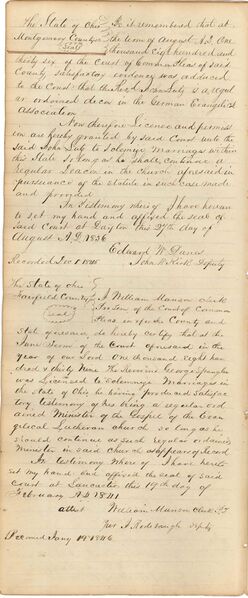 The State of Ohio } Be it remembered that at
Montgomery County ss } the term of August A.D. One
Seal thousand eight hundred and
thirty six of the Court of Common Pleas of said
County satisfactory evidence was adduced
to the Court that is a regu-
lar ordained deacon in the German Evangelist
Association
Now therefore Licence and permiss
ion are hereby granted by said Court unto the
said John to Solemnize Marriages within
this State so long as he shall continue a
Regular Deacon in the church aforesaid in
pursuance of the statute in such case made
and provided
In testimony whereof I have hereun
to set my hand and affixed the seal of
said Court at Dayton this 27th day of
August A.D. 1836
Edward W. Davis
Recorded Dec 1 John W. Deputy
The State of Ohio }
Fairfield County ss } I William Manson clerk
Seal of the Court of Common
Pleas in & for the County and
State aforesaid do hereby certify that at the
June Term of the Court aforesaid in the
year of our Lord one thousand eight hun
dred & thirty Nine The Reverend George Spangler
was Licensed to solemnize Marriages in
the State of Ohio he having produced satisfac
tory testimony of his being a regular ord
ained Minister of the Gospel by the Evan
gelical Lutheran church so long as he
should continue as such regular ordained
Minister in said church as appears of Record
In testimony Whereof I have hereto
set my hand and affixed the seal of said
Court at Lancaster this 19th day of
February A.D. 1841
attest William Manson Clerk